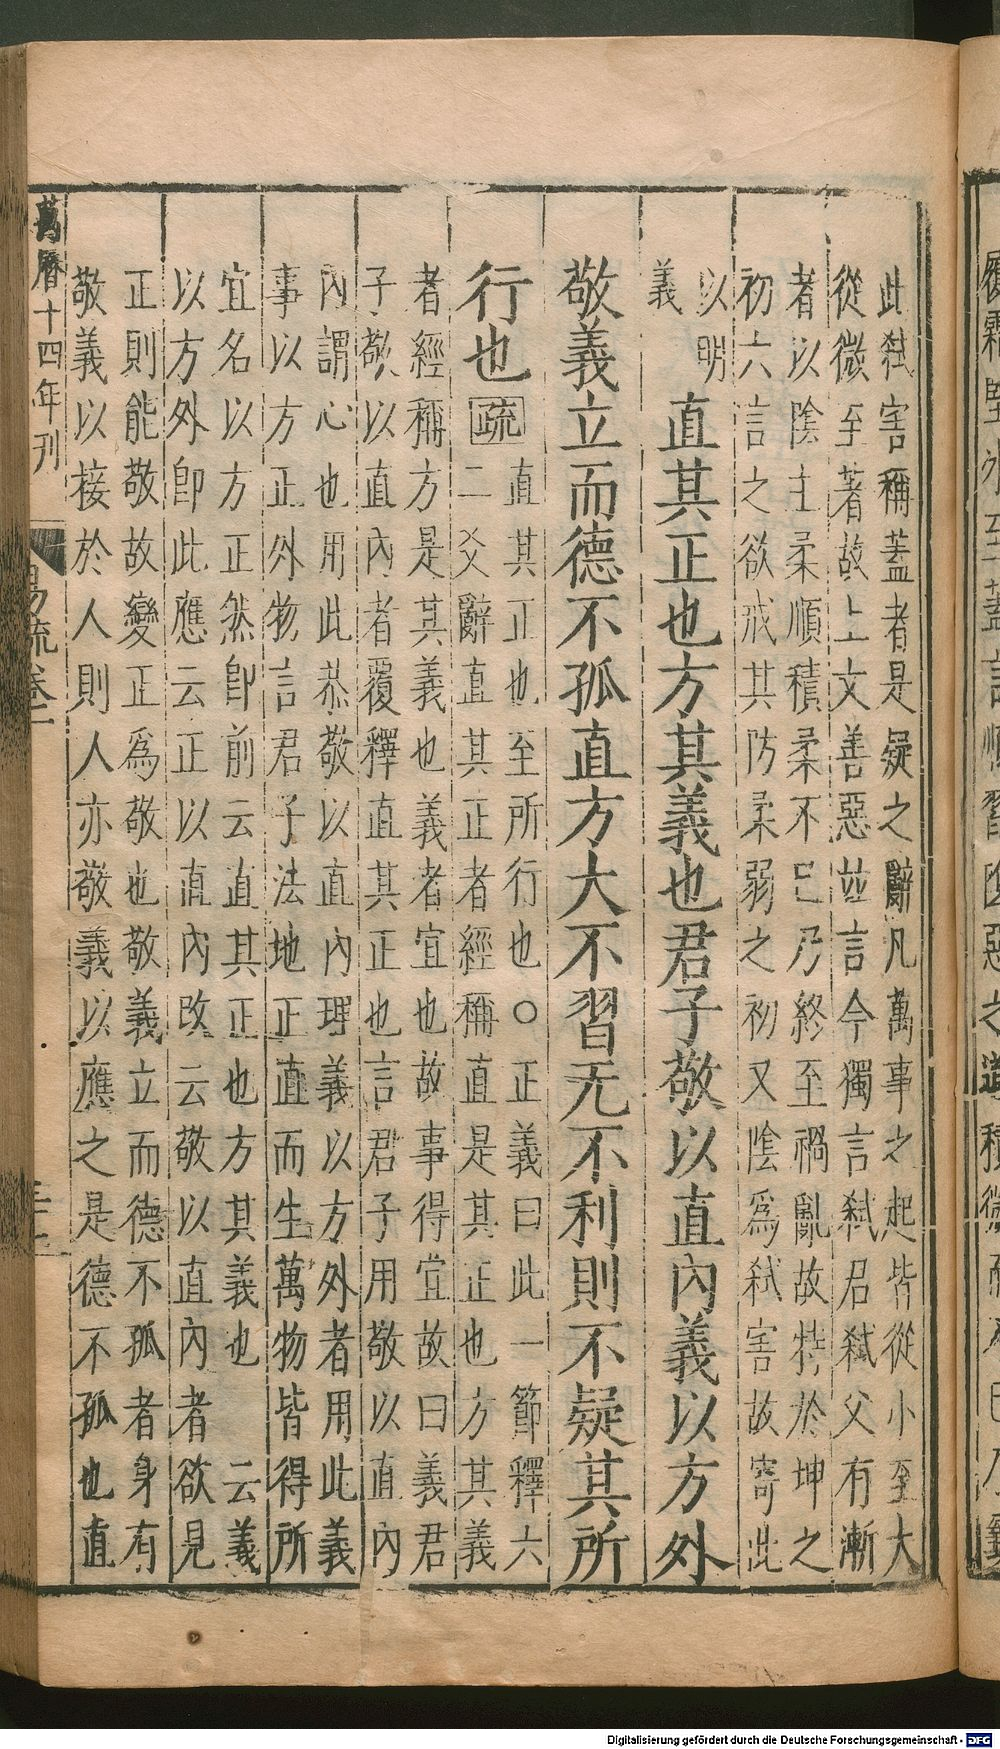 此弑害稱蓋者是疑之辭凡萬事之起皆從小至大
從微至著故上文善惡竝言今獨言弑君弑父有漸
者以陰主柔順積柔不已乃終至禍亂故特於坤之
初六言之欲戒其防柔弱之初又陰爲弑害故寄此
以明
義
直其正也方其義也君子敬以直內義以方外
敬義立而德不孤直方大不習无不利則不疑其所
行也
疏
直其正也至所行也○正義曰此一節釋六
二爻辭直其正者經稱直是其正也方其義
者經稱方是其義也義者宜也故事得宜故曰義君
子敬以直內者覆釋直其正也言君子用敬以直內
內謂心也用此恭敬以直內理義以方外者用此義
事以方正外物言君子法地正直而生萬物皆得所
宜名以方正然卽前云直其正也方其義也云義
以方外卽此應云正以直內改云敬以直內者欲見
正則能敬故變正爲敬也敬義立而德不孤者身有
敬義以接於人則人亦敬義以應之是德不孤也直
萬曆十四年刊
易疏卷一
Digitalisierung gefördert durch die Deutsche Forschungsgemeinschaft - DFG